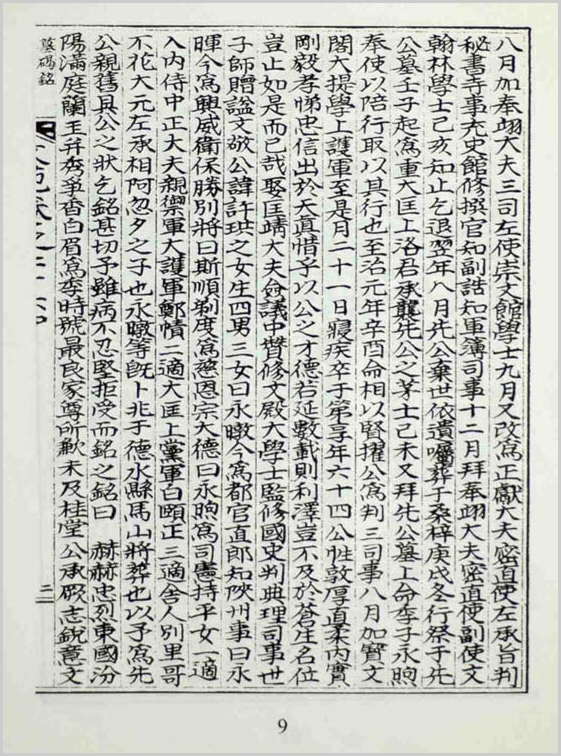 八月加奉翊大夫三司左使崇文館學士九月又改爲正獻大夫密直使左承旨判
秘書寺事充史館修撰官知副誥知軍簿司事十二月拜奉翊大夫密直使副使文
翰林學士己亥知止乞退翌年八月先公棄世依遺囑葬于桑梓庚戌冬行祭于先
公墓壬子起爲重大匡上洛君承襲先公之茅士己未又拜先公墓上命季子永煦
奉使以陪行取以其行也至治元年辛酉命相以賢擢公爲判三司事八月加賢文
閣大提學上護軍至是月二十一日寢疾卒于第享年六十四公性敦厚直柔內實
剛毅孝悌忠信出於天眞惜乎以公之才德若延數載則利澤豈不及於蒼生名位
豈止如是而已哉娶匡靖大夫僉議中贊修文殿大學士監修國史判典理司事世
子師贈諡文敬公諱許珙之女生四男三女曰永暾今爲都官直郞知陜州事曰永
暉今爲興威衛保勝別將曰斯順剃度爲慈恩宗大德曰永煦爲司憲持平女一適
入內侍中正大夫親禦軍大護軍鄭情二適大匡上黨軍白頤正三適舍人別里哥
不花大元左承相阿忽夕之子也永暾等旣卜兆于德水縣馬山將葬也以予爲先
公親舊具公之狀乞銘甚切予雖病不忍堅拒受而銘之銘曰 赫赫忠烈東國汾
陽滿庭蘭玉幷秀爭香白眉爲季時號最良家尊所歉未及桂堂公承嘏志銳意文
墓碣銘
三
9